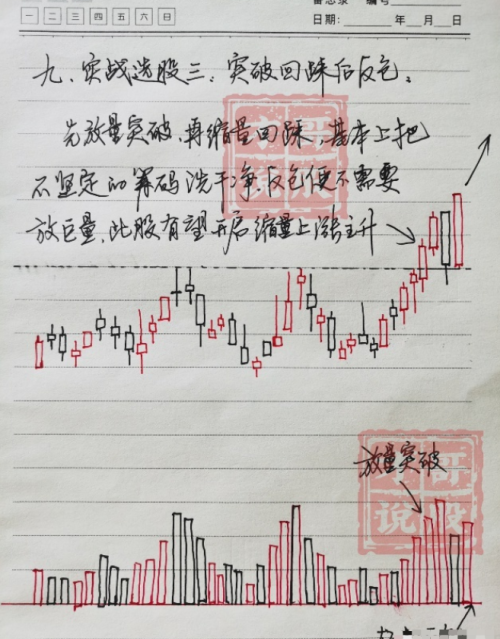 备忘录 编号
一 二 三 四 五 六 日
日期: 年 月 日
九、实战选股三:突破回踩后反包。
先放量突破,再缩量回踩,基本上把
不坚定的筹码洗干净,反包便不需要
放巨量,此股有望开启缩量上涨主升
放量突破
哥
说股